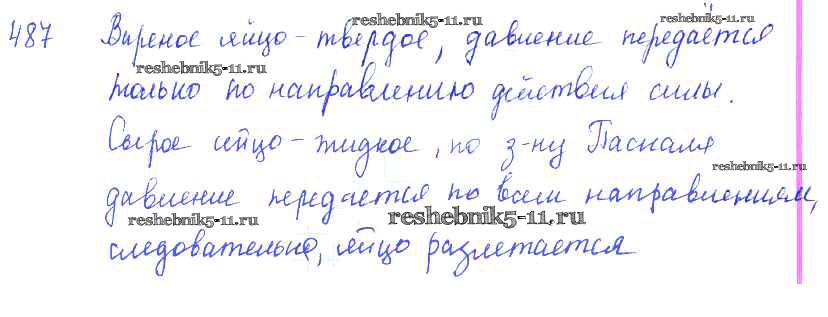 reshebnik5-11.ru reshebnik5-11.ru
487 Вареное яйцо - твердое, давление передаётся
reshebnik5-11.ru
только по направлению действия силы.
Сырое яйцо - жидкое, по з-ну Паскаля
reshebnik5-11.ru
давление передается по всем направлениям,
reshebnik5-11.ru reshebnik5-11.ru
следовательно, яйцо разлетается